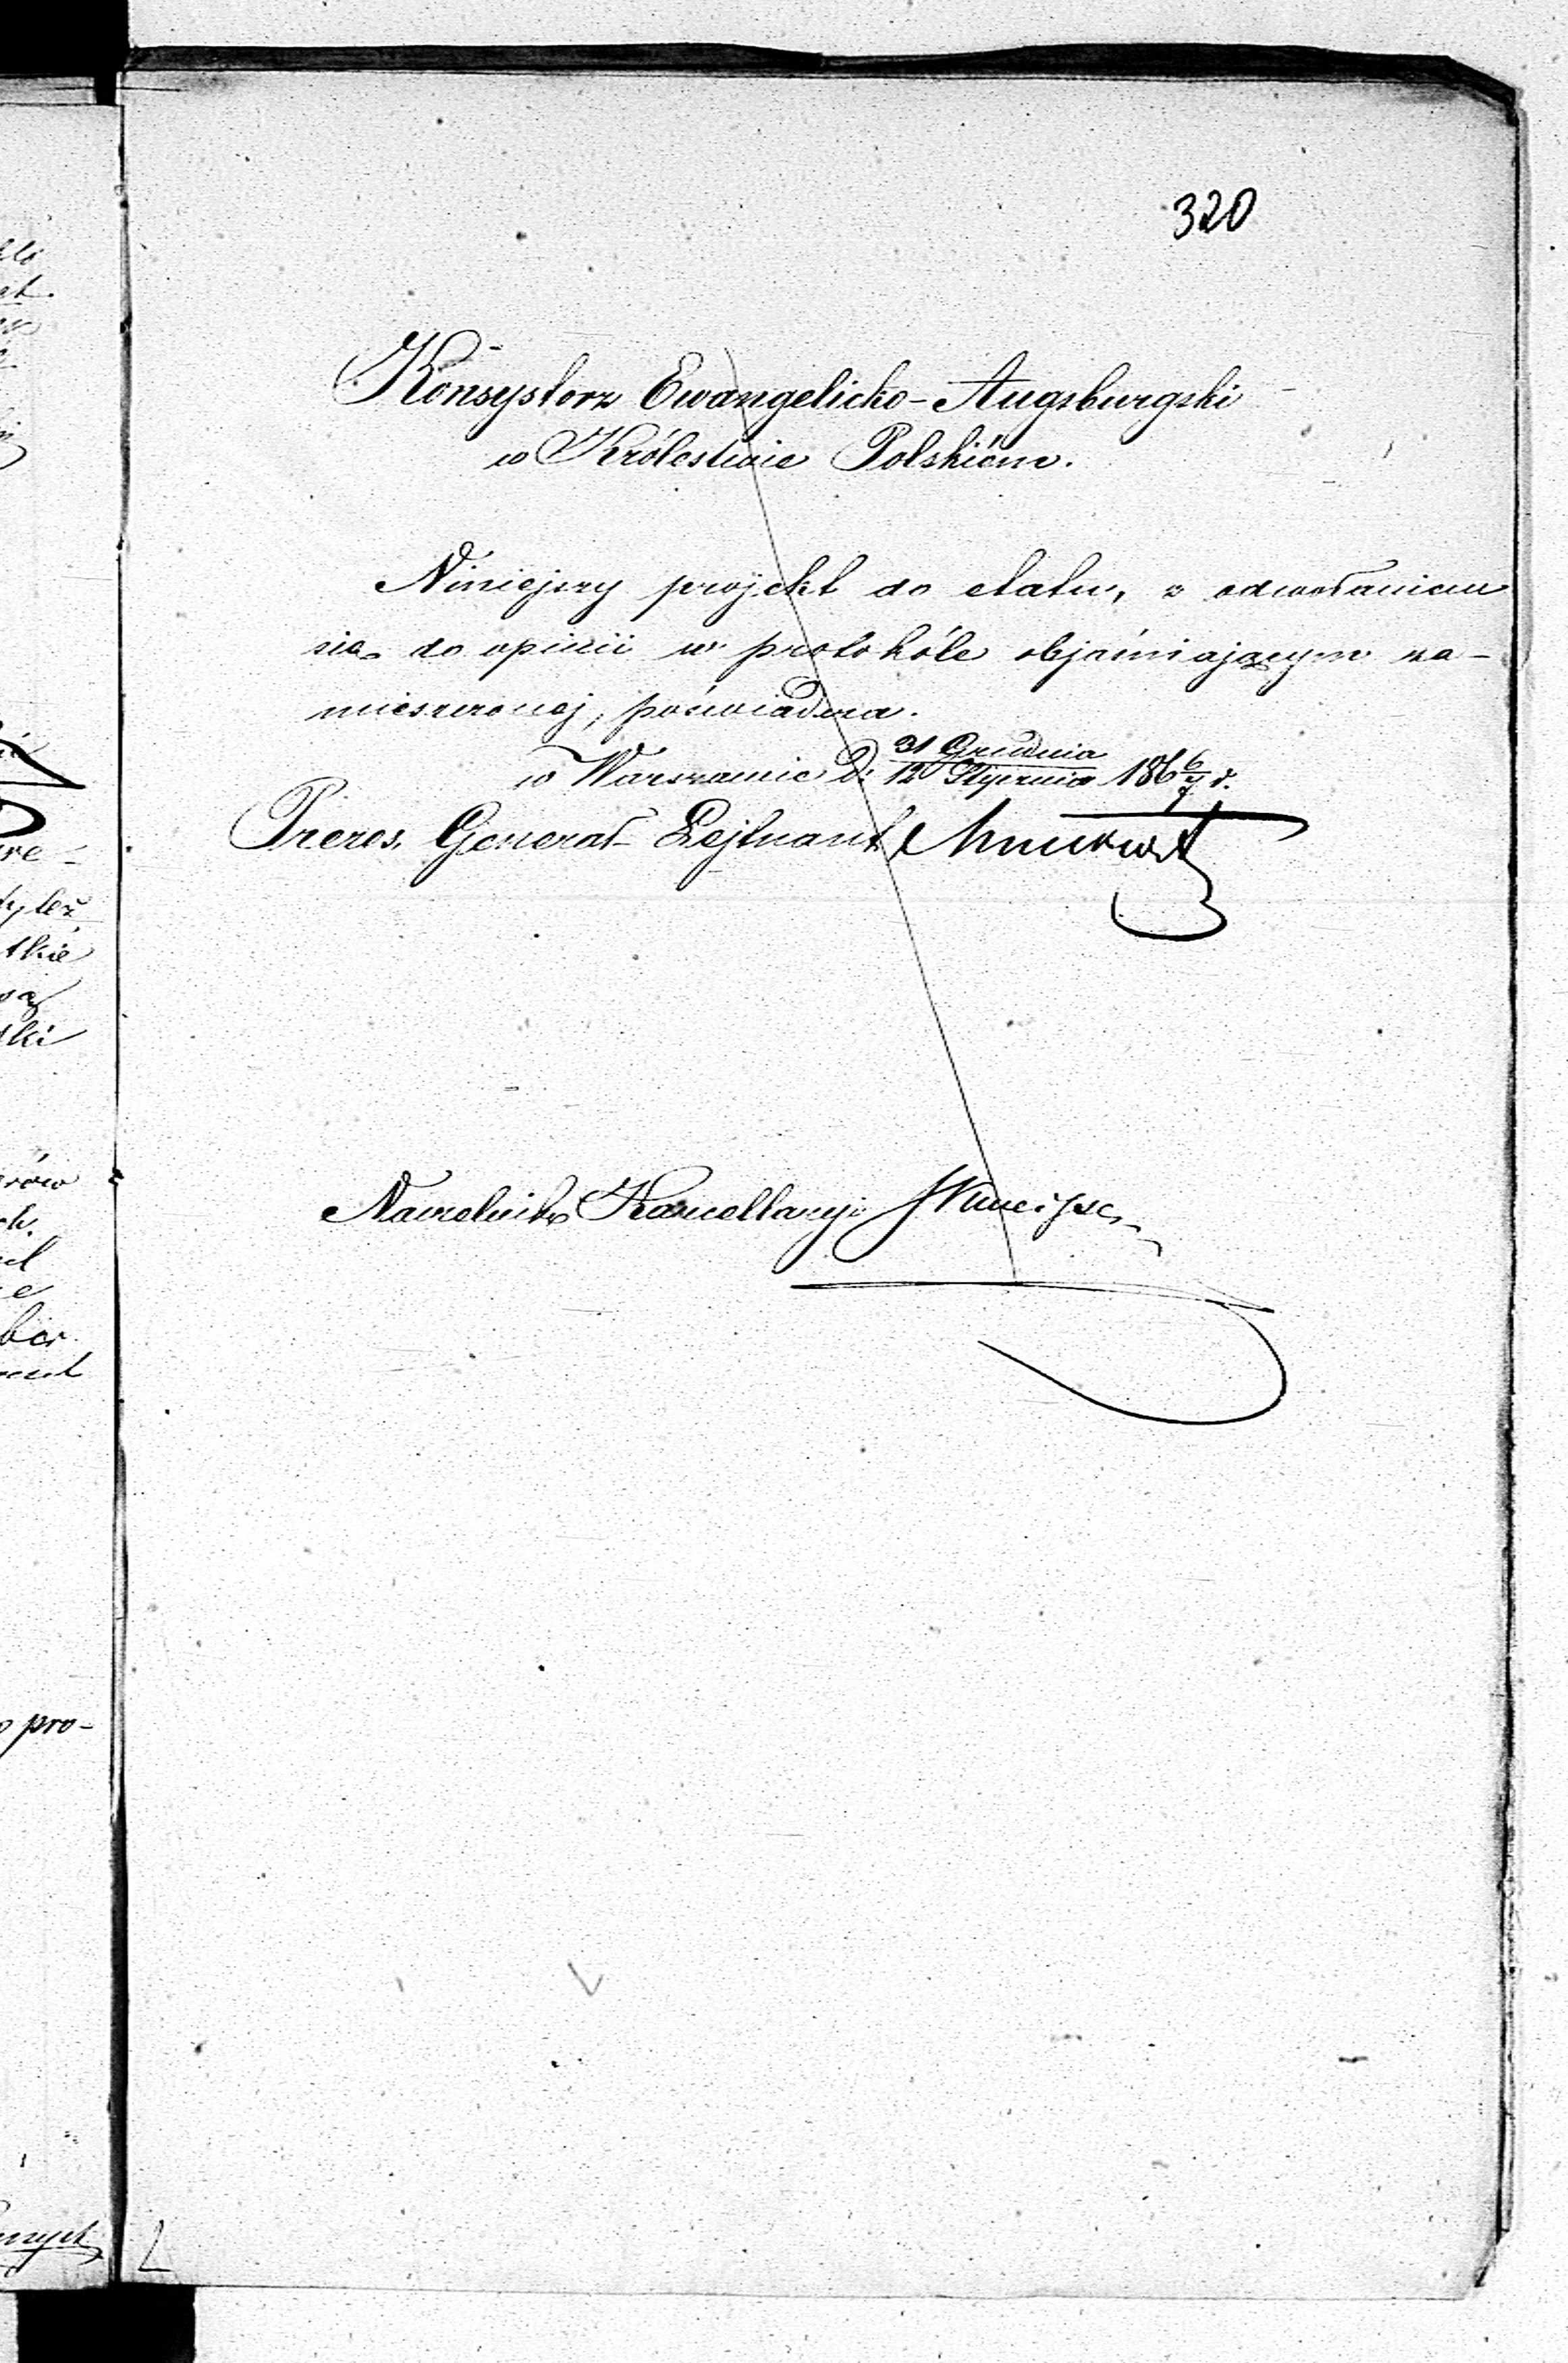 320
Konsystorz Ewangelicko-Augsburgski
w Królestwie Polskiém.
Niniejszy projekt do etatu, z odwołaniem
się do opinii w protokóle objaśniającym za-
mieszczonej, poświadcza.
w Warszawie d: 31 Grudnia / 12 Stycznia 186 6/7 r.
Prezes, Generał-Lejtnant
Naczelnik Kancellaryi